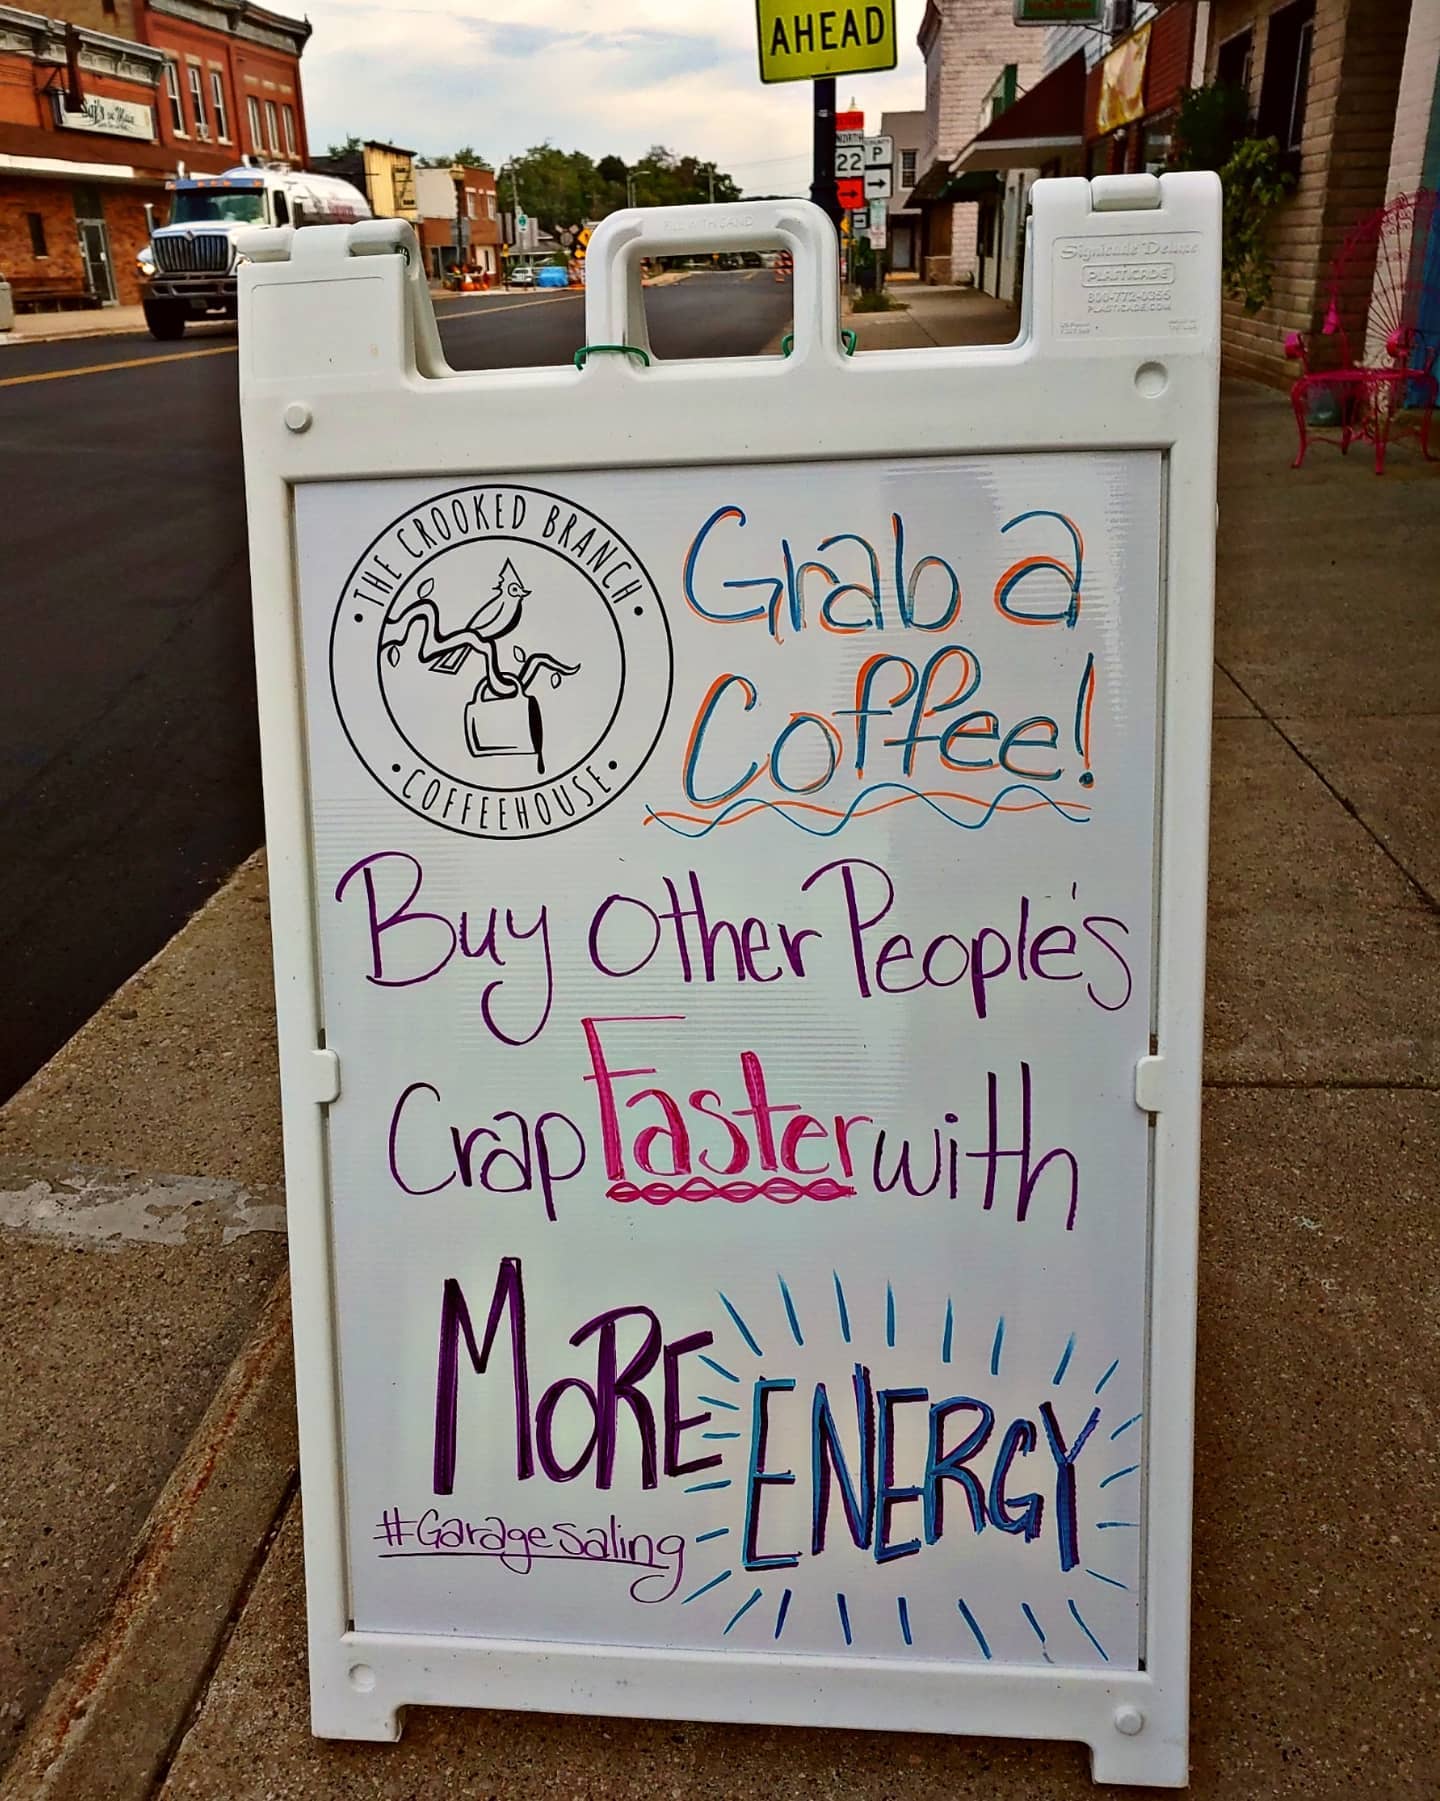 AHEAD
NORTH
22
P
FILL WITH SAND
Signicade Deluxe
PLASTICADE
800-772-0355
PLASTICADE.COM
THE CROOKED BRANCH
COFFEEHOUSE
Grab a
Coffee!
Buy Other People's
Crap Faster with
MORE ENERGY
#GarageSaling